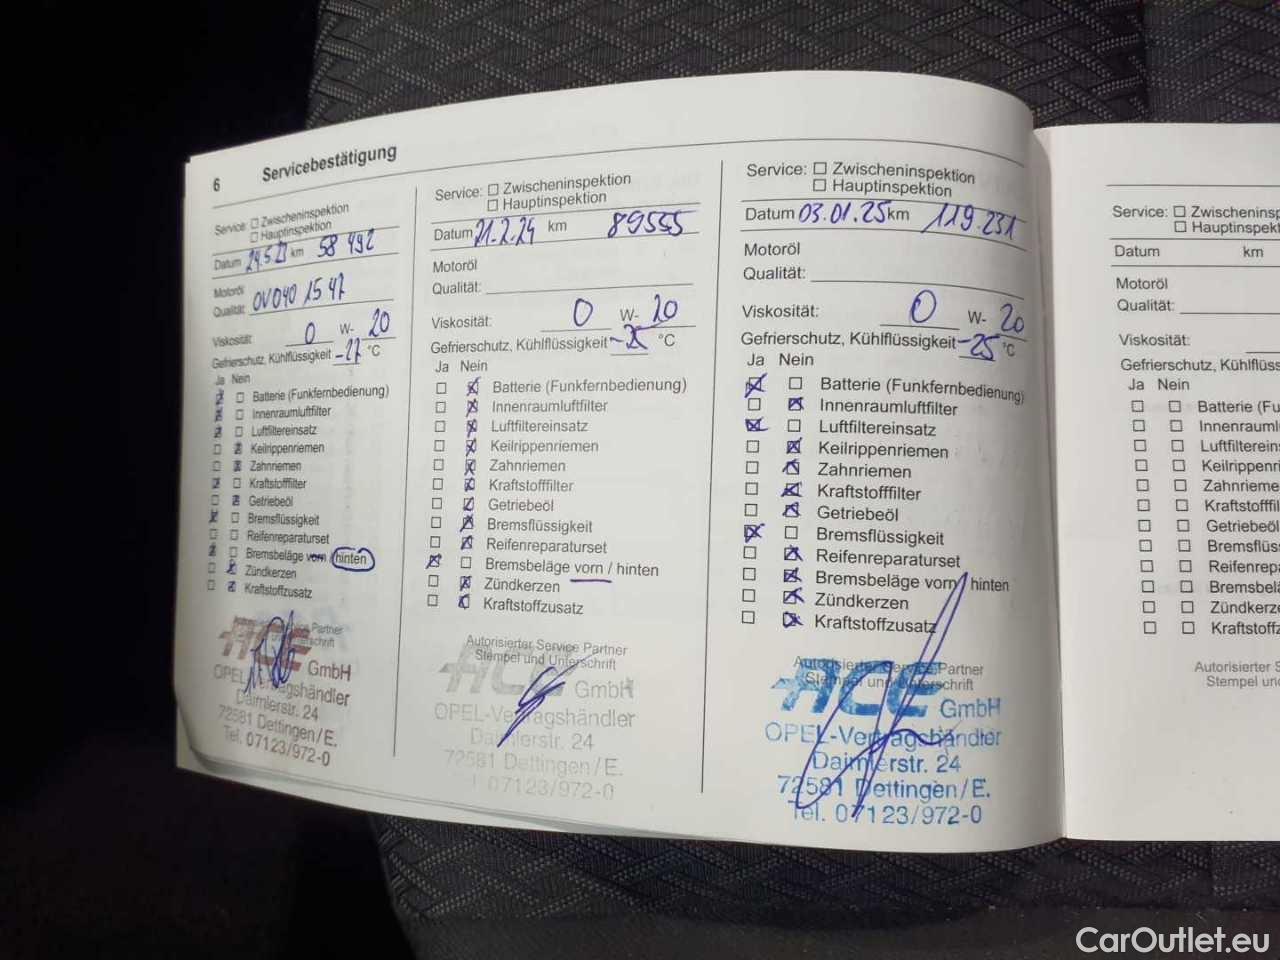 6 Servicebestätigung
Service: Zwischeninspektion
Hauptinspektion
Datum 24.5.23 km 58 492
Motoröl
Qualität: OV040 1547
Viskosität: 0 W- 20
Gefrierschutz, Kühlflüssigkeit -27 °C
Ja Nein
Batterie (Funkfernbedienung)
Innenraumluftfilter
Luftfiltereinsatz
Keilrippenriemen
Zahnriemen
Kraftstofffilter
Getriebeöl
Bremsflüssigkeit
Reifenreparaturset
Bremsbeläge vorn / hinten
Zündkerzen
Kraftstoffzusatz
Autorisierter Service Partner
Stempel und Unterschrift
ACE GmbH
OPEL-Vertragshändler
Daimlerstr. 24
72581 Dettingen/E.
Tel. 07123/972-0
Service: Zwischeninspektion
Hauptinspektion
Datum 21.2.24 km 89555
Motoröl
Qualität:
Viskosität: 0 W- 20
Gefrierschutz, Kühlflüssigkeit -25 °C
Ja Nein
Batterie (Funkfernbedienung)
Innenraumluftfilter
Luftfiltereinsatz
Keilrippenriemen
Zahnriemen
Kraftstofffilter
Getriebeöl
Bremsflüssigkeit
Reifenreparaturset
Bremsbeläge vorn / hinten
Zündkerzen
Kraftstoffzusatz
Autorisierter Service Partner
Stempel und Unterschrift
ACE GmbH
OPEL-Vertragshändler
Daimlerstr. 24
72581 Dettingen/E.
07123/972-0
Service: Zwischeninspektion
Hauptinspektion
Datum 03.01.25 km 119.231
Motoröl
Qualität:
Viskosität: 0 W- 20
Gefrierschutz, Kühlflüssigkeit -25 °C
Ja Nein
Batterie (Funkfernbedienung)
Innenraumluftfilter
Luftfiltereinsatz
Keilrippenriemen
Zahnriemen
Kraftstofffilter
Getriebeöl
Bremsflüssigkeit
Reifenreparaturset
Bremsbeläge vorn / hinten
Zündkerzen
Kraftstoffzusatz
Autorisierter Service Partner
Stempel und Unterschrift
ACE GmbH
OPEL-Vertragshändler
Daimlerstr. 24
72581 Dettingen/E.
Tel. 07123/972-0
Service: Zwischeninsp
Hauptinspekt
Datum km
Motoröl
Qualität:
Viskosität:
Gefrierschutz, Kühlflüss
Ja Nein
Batterie (Fu
Innenrauml
Luftfilterein
Keilrippenri
Zahnrieme
Kraftstofffil
Getriebeöl
Bremsflüss
Reifenrepa
Bremsbelä
Zündkerze
Kraftstoffz
Autorisierter S
Stempel un
CarOutlet.eu